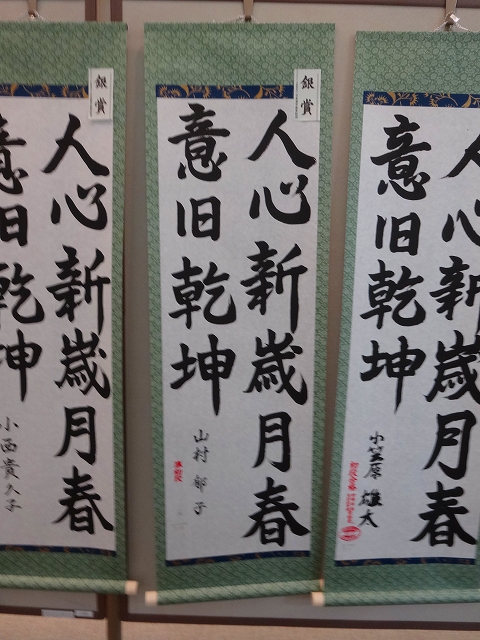 人心新歳月春
意旧乾坤
小笠原 雄太
銀賞
人心新歳月春
意旧乾坤
山村郁子
銀賞
人心新歳月春
意旧乾坤
小西貴久子